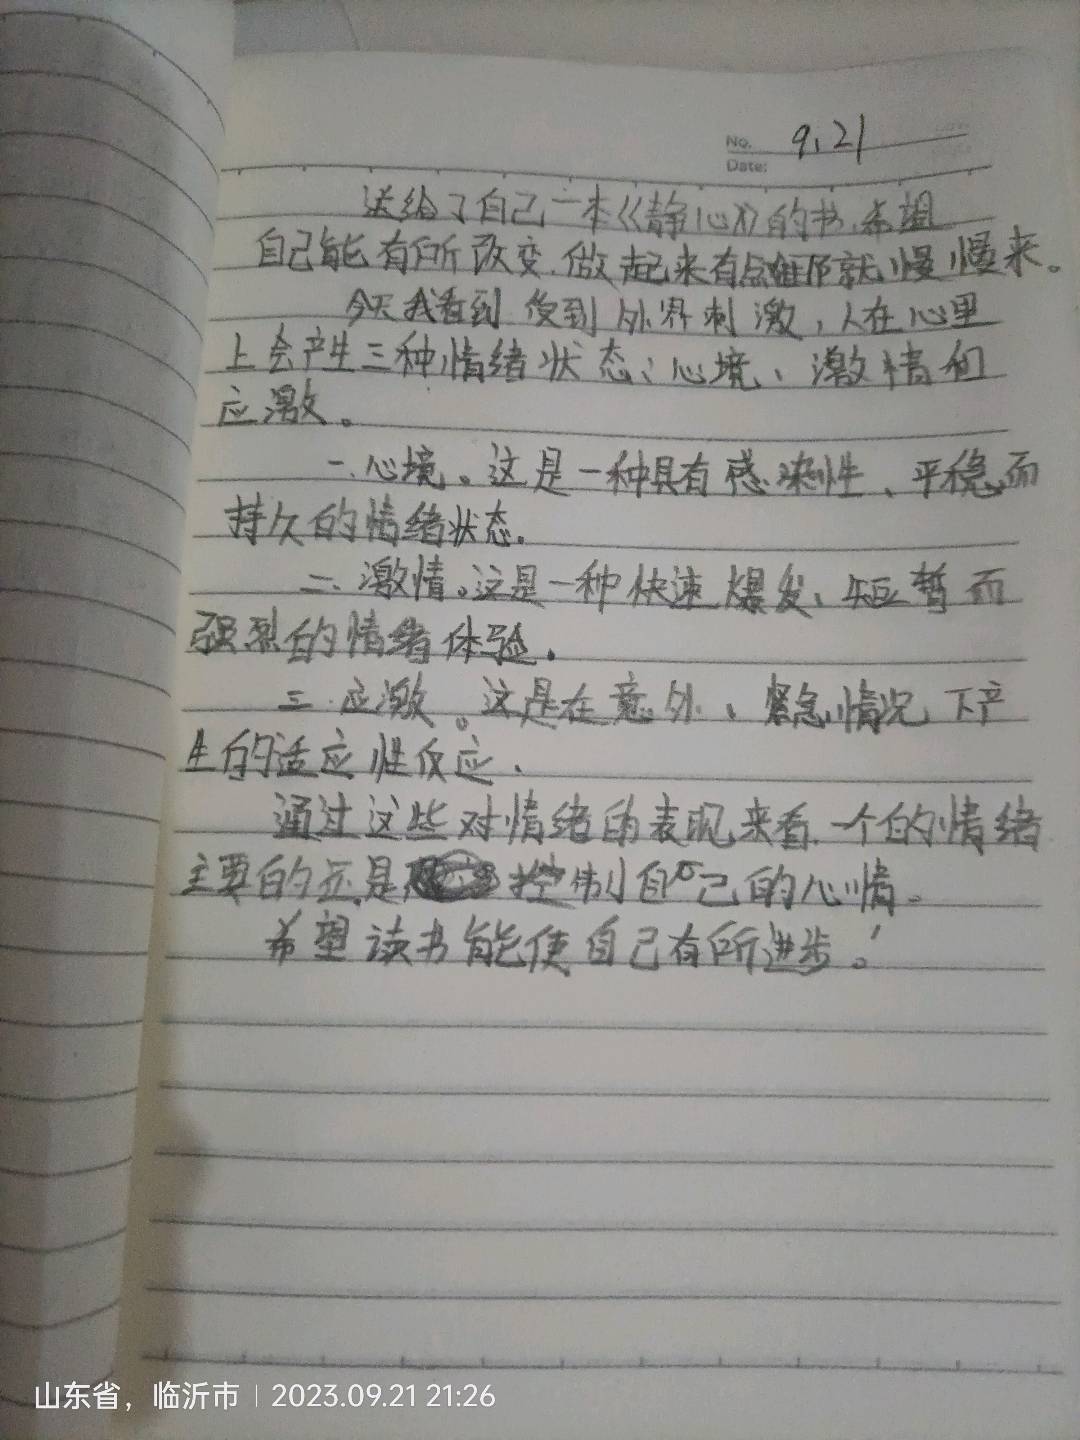 No. 9.21
Date:
送给了自己一本《静心》的书，希望
自己能有所改变，做起来有点难那就慢慢来。
今天我看到受到外界刺激，人在心里
上会产生三种情绪状态：心境、激情和
应激。
一、心境。这是一种具有感染性、平稳而
持久的情绪状态。
二、激情。这是一种快速爆发、短暂而
强烈的情绪体验。
三、应激。这是在意外、紧急情况下产
生的适应性反应。
通过这些对情绪的表现来看，一个的情绪
主要的还是控制自己的心情。
希望读书能使自己有所进步。！
山东省，临沂市 | 2023.09.21 21:26